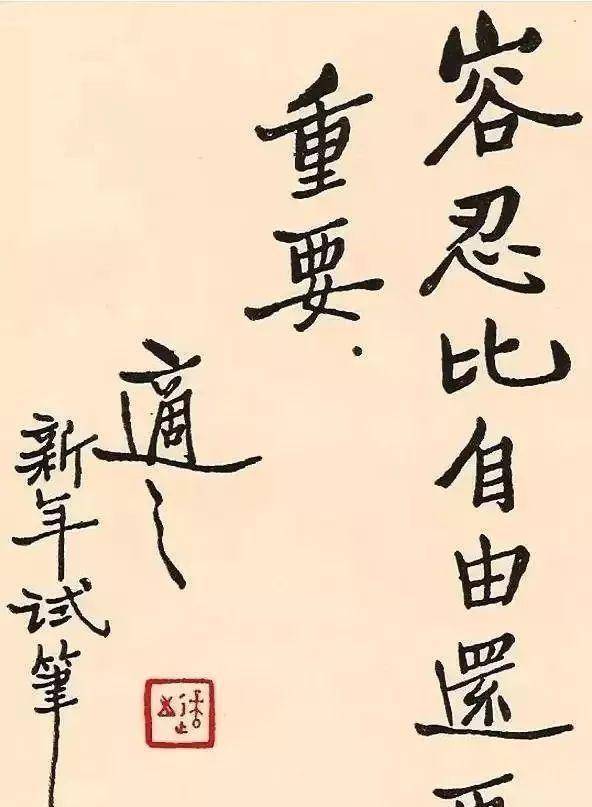 容忍比自由還
重要.
適之
新年試筆